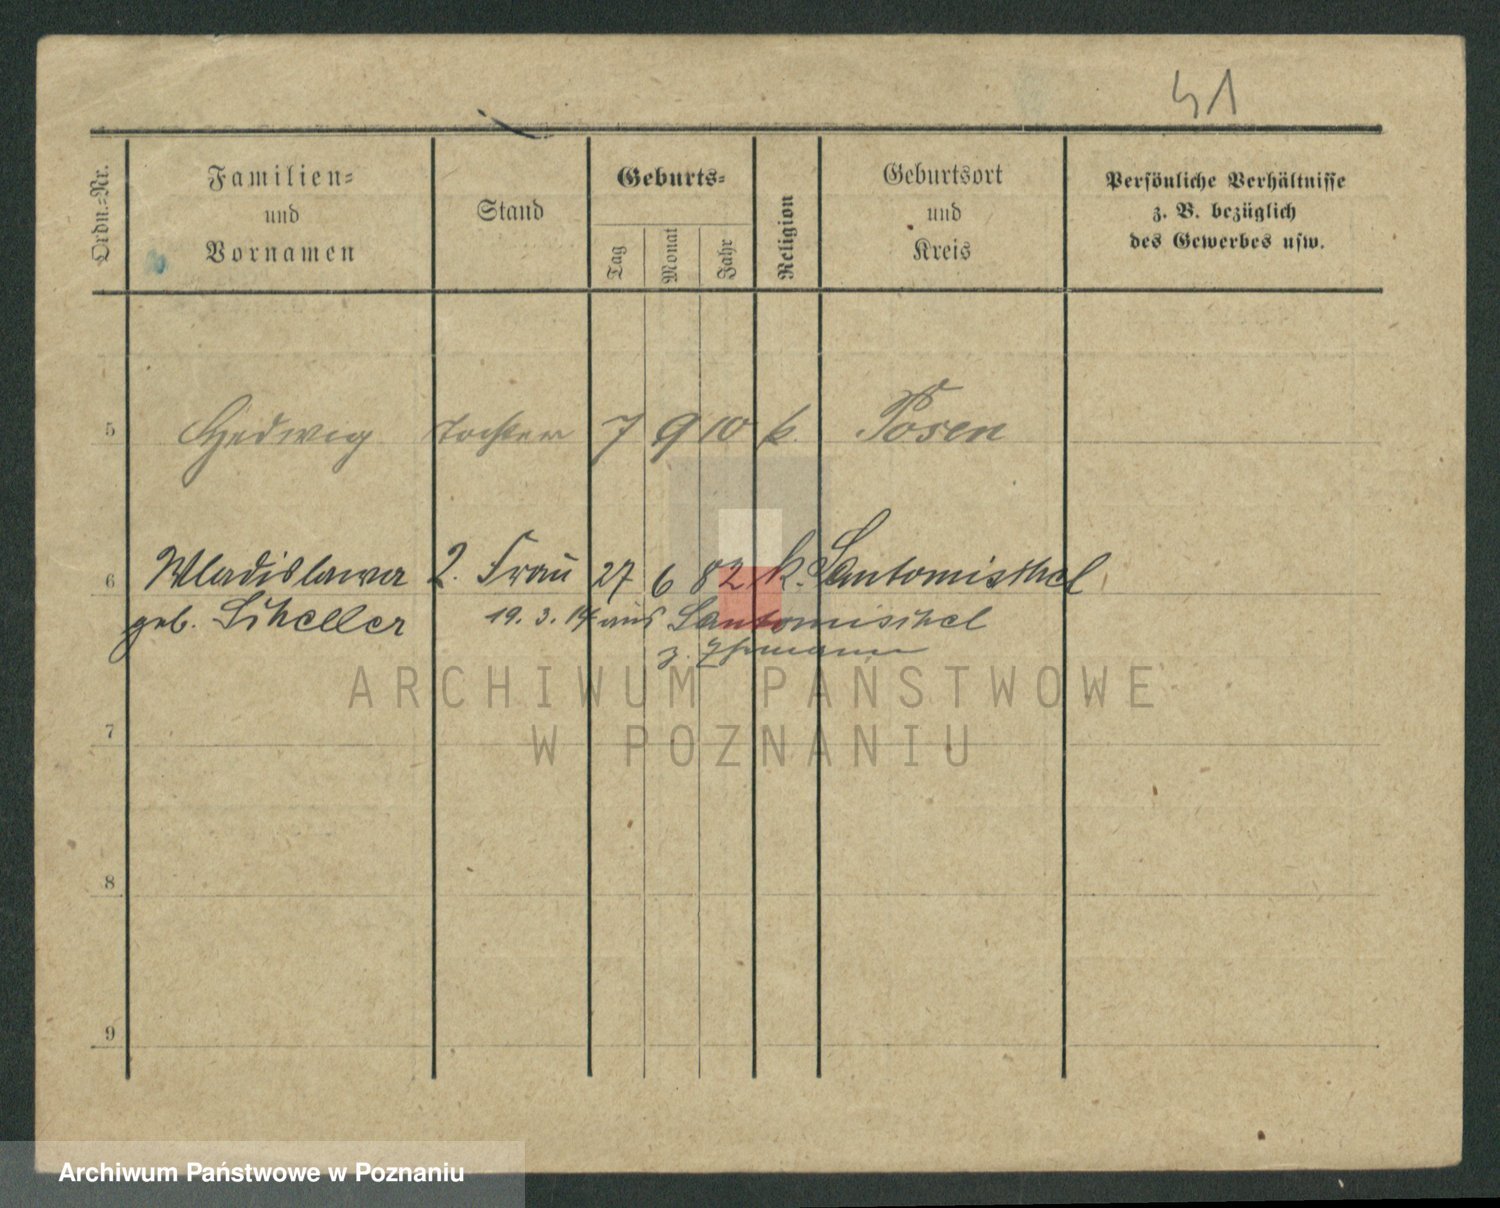 41
Ordn.-Nr.
Familien-
und
Vornamen
Stand
Geburts-
Tag
Monat
Jahr
Religion
Geburtsort
und
Kreis
Persönliche Verhältnisse
z. B. bezüglich
des Gewerbes usw.
5 Hedwig Tochter 7 9 10 k. Posen
6 Wladislawa 2. Frau 27 6 82 k. Santomischel
geb. Scheller 19. 3. 14 aus Santomischel
z. Ehemann
ARCHIWUM PAŃSTWOWE
W POZNANIU
7
8
9
Archiwum Państwowe w Poznaniu